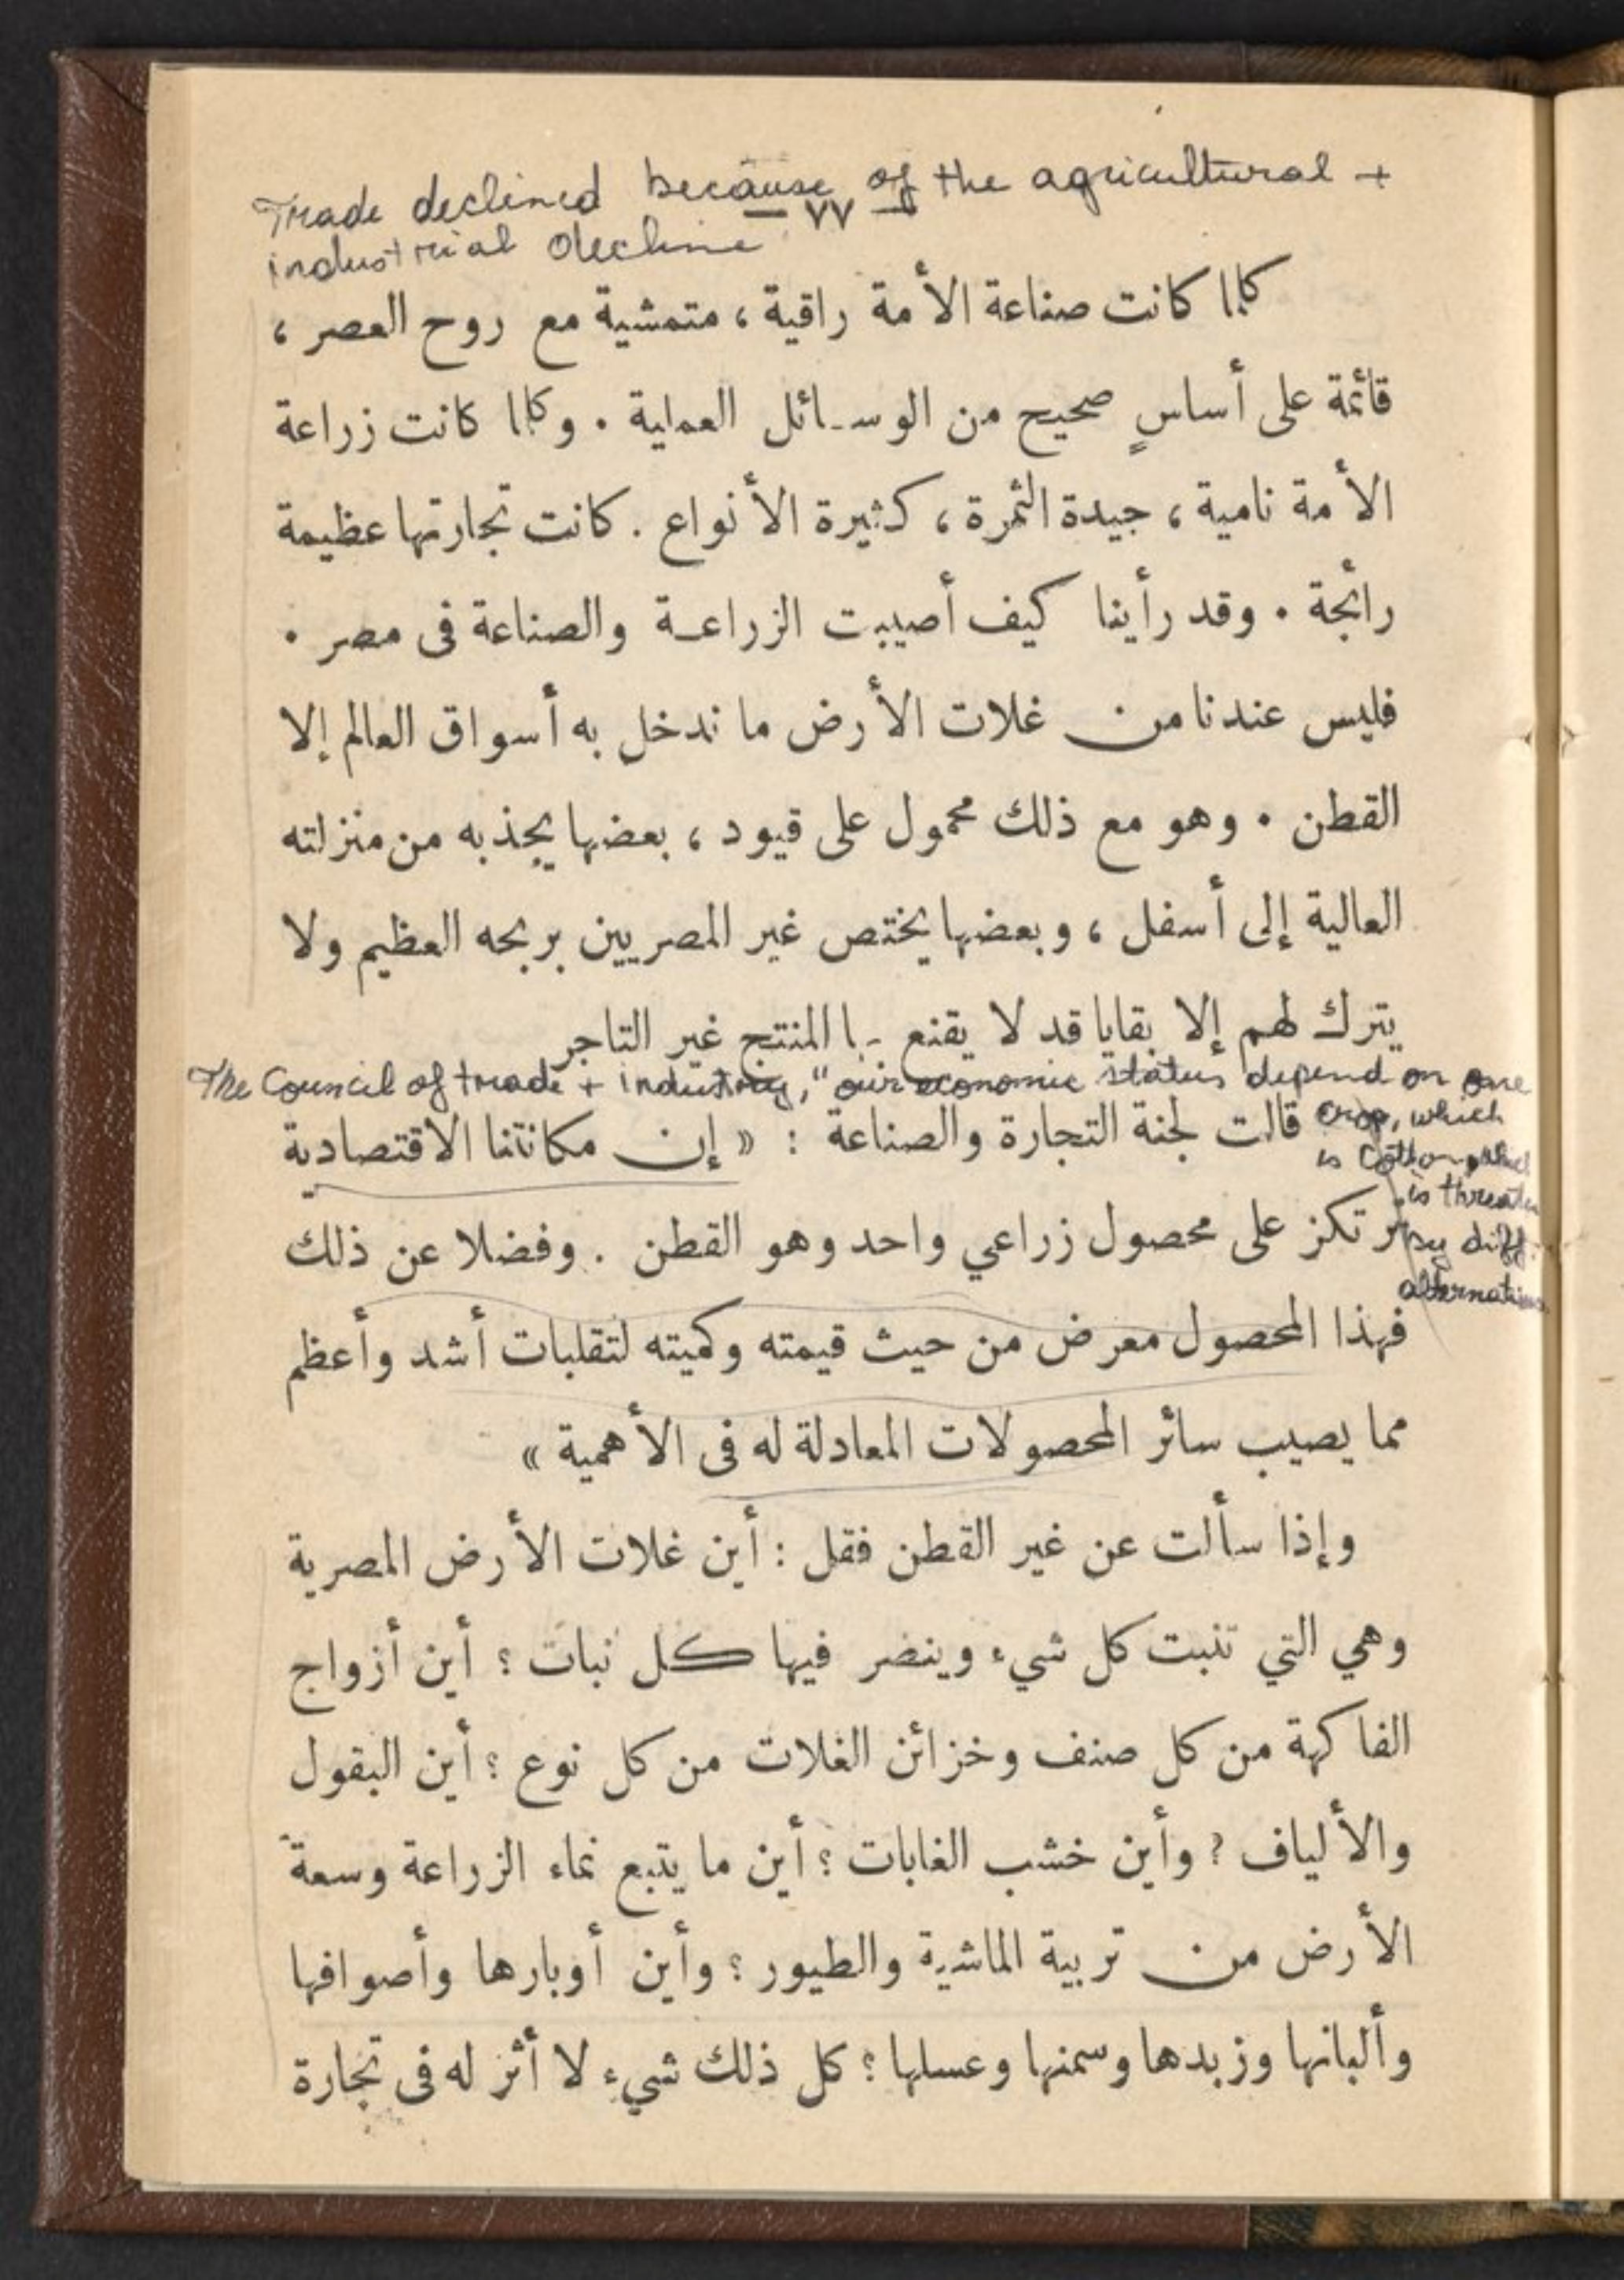 Trade declined because of the agricultural +
— ٧٧ —
industrial decline
كلما كانت صناعة الأمة راقية ، متمشية مع روح العصر ،
قائمة على أساسٍ صحيح من الوسائل العملية . وكلما كانت زراعة
الأمة نامية ، جيدة الثمرة ، كثيرة الأنواع . كانت تجارتها عظيمة
رائجة . وقد رأينا كيف أصيبت الزراعة والصناعة فى مصر .
فليس عندنا من غلات الأرض ما ندخل به أسواق العالم إلا
القطن . وهو مع ذلك محمول على قيود ، بعضها يجذبه من منزلته
العالية إلى أسفل ، وبعضها يختص غير المصريين بربحه العظيم ولا
يترك لهم إلا بقايا قد لا يقنع بها المنتج غير التاجر
The Council of trade + industry, "our economic status depend on one
crop, which
is cotton
is
by diff.
قالت لجنة التجارة والصناعة : « إن مكانتنا الاقتصادية
ترتكز على محصول زراعي واحد وهو القطن . وفضلا عن ذلك
فهذا المحصول معرض من حيث قيمته وكميته لتقلبات أشد وأعظم
مما يصيب سائر المحصولات المعادلة له فى الأهمية »
وإذا سألت عن غير القطن فقل : أين غلات الأرض المصرية
وهي التي تنبت كل شيء وينضر فيها كل نبات ؟ أين أزواج
الفاكهة من كل صنف وخزائن الغلات من كل نوع ؟ أين البقول
والألياف ؟ وأين خشب الغابات ؟ أين ما يتبع نماء الزراعة وسعة
الأرض من تربية الماشية والطيور ؟ وأين أوبارها وأصوافها
وألبانها وزبدها وسمنها وعسلها ؟ كل ذلك شيء لا أثر له فى تجارة